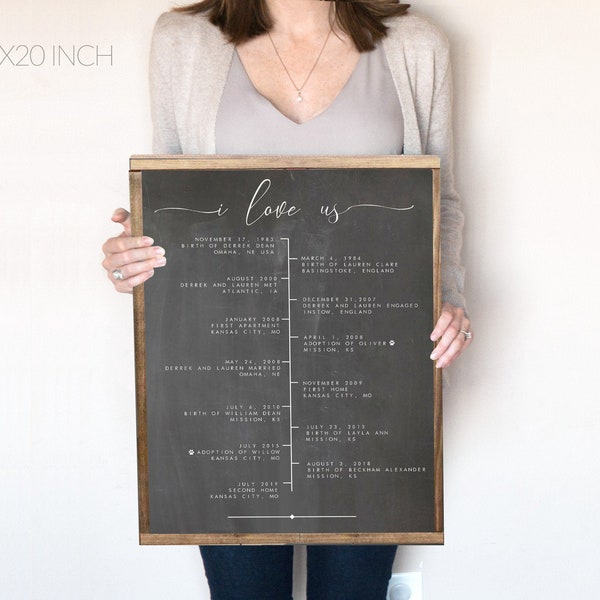 X20 INCH
i love us
NOVEMBER 17, 1983
BIRTH OF DERREK DEAN
OMAHA, NE USA
MARCH 4, 1984
BIRTH OF LAUREN CLARE
BASINGSTOKE, ENGLAND
AUGUST 2000
DERREK AND LAUREN MET
ATLANTIC, IA
DECEMBER 31,2007
DERREK AND LAUREN ENGAGED
INSTOW, ENGLAND
JANUARY 2008
FIRST APARTMENT
KANSAS CITY, MO
APRIL 1, 2008
ADOPTION OF OLIVER
MISSION, KS
MAY 24, 2008
DERREK AND LAUREN MARRIED
OMAHA, NE
NOVEMBER 2009
FIRST HOME
KANSAS CITY, MO
JULY 6, 2010
BIRTH OF WILLIAM DEAN
MISSION, KS
JULY 23, 2013
BIRTH OF LAYLA ANN
MISSION, KS
JULY 2015
ADOPTION OF WILLOW
KANSAS CITY, MO
AUGUST 2, 2018
BIRTH OF BECKHAM ALEXANDER
MISSION, KS
JULY 2019
SECOND HOME
KANSAS CITY, MO